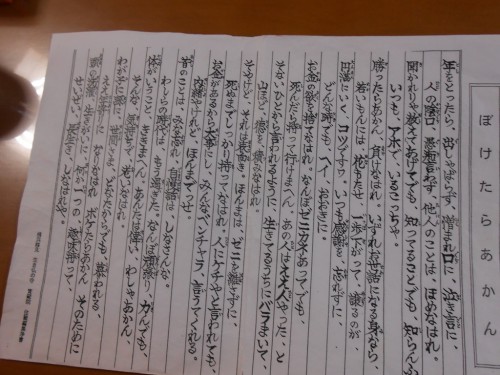 ぼけたらあかん
年をとったら、出しゃばらず、憎まれ口に、泣き言に、
人の陰口、愚痴言わず、他人のことは、ほめなはれ、
聞かれりゃ教えてあげてでも、知ってることでも、知らんふり、
いつでも、アホで、いるこっちゃ。
勝ったらあかん、負けなはれ、いずれお世話になる身なら、
若いもんには、花持たせ、一歩さがって、譲るのが、
円満にいく、コツですわ、いつも感謝を、忘れずに、
どんな時でも、へえ、おおきに。
お金の欲を、捨てなはれ、なんぼゼニカネあってでも、
死んだら持って行けまへん、あの人はええ人やった、と、
そないに人から言われるように、生きているうちにバラまいて、
山ほど、徳を、積みなはれ。
そやけど、それは表向き、ほんまはゼニを離さずに、
死ぬまでしっかり持ってなはれ、人にケチやと言われても、
お金があるから大事にし、みんなベンチャラ、言うてくれる、
内緒やけれど、ほんまだっせ。
昔のことは、みな忘れ、自慢話は、しなはんな、
わしらの時代は、もう過ぎた、なんぼ頑張り、力んでも、
体がいうこと、ききまへん、あんたはえらい、わしゃあかん、
そんな気持ちで、おりなはれ。
わが子に孫に、世間さま、どなたからでも、慕われる、
ええ年寄りに、なりなはれ、ボケたらあかん、そのために、
頭の洗濯、生きがいに、何か一つの、趣味持って、
せいぜい、長生き、しなはれや。